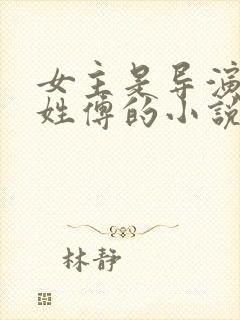 女主是导演
姓傅的小説
林静